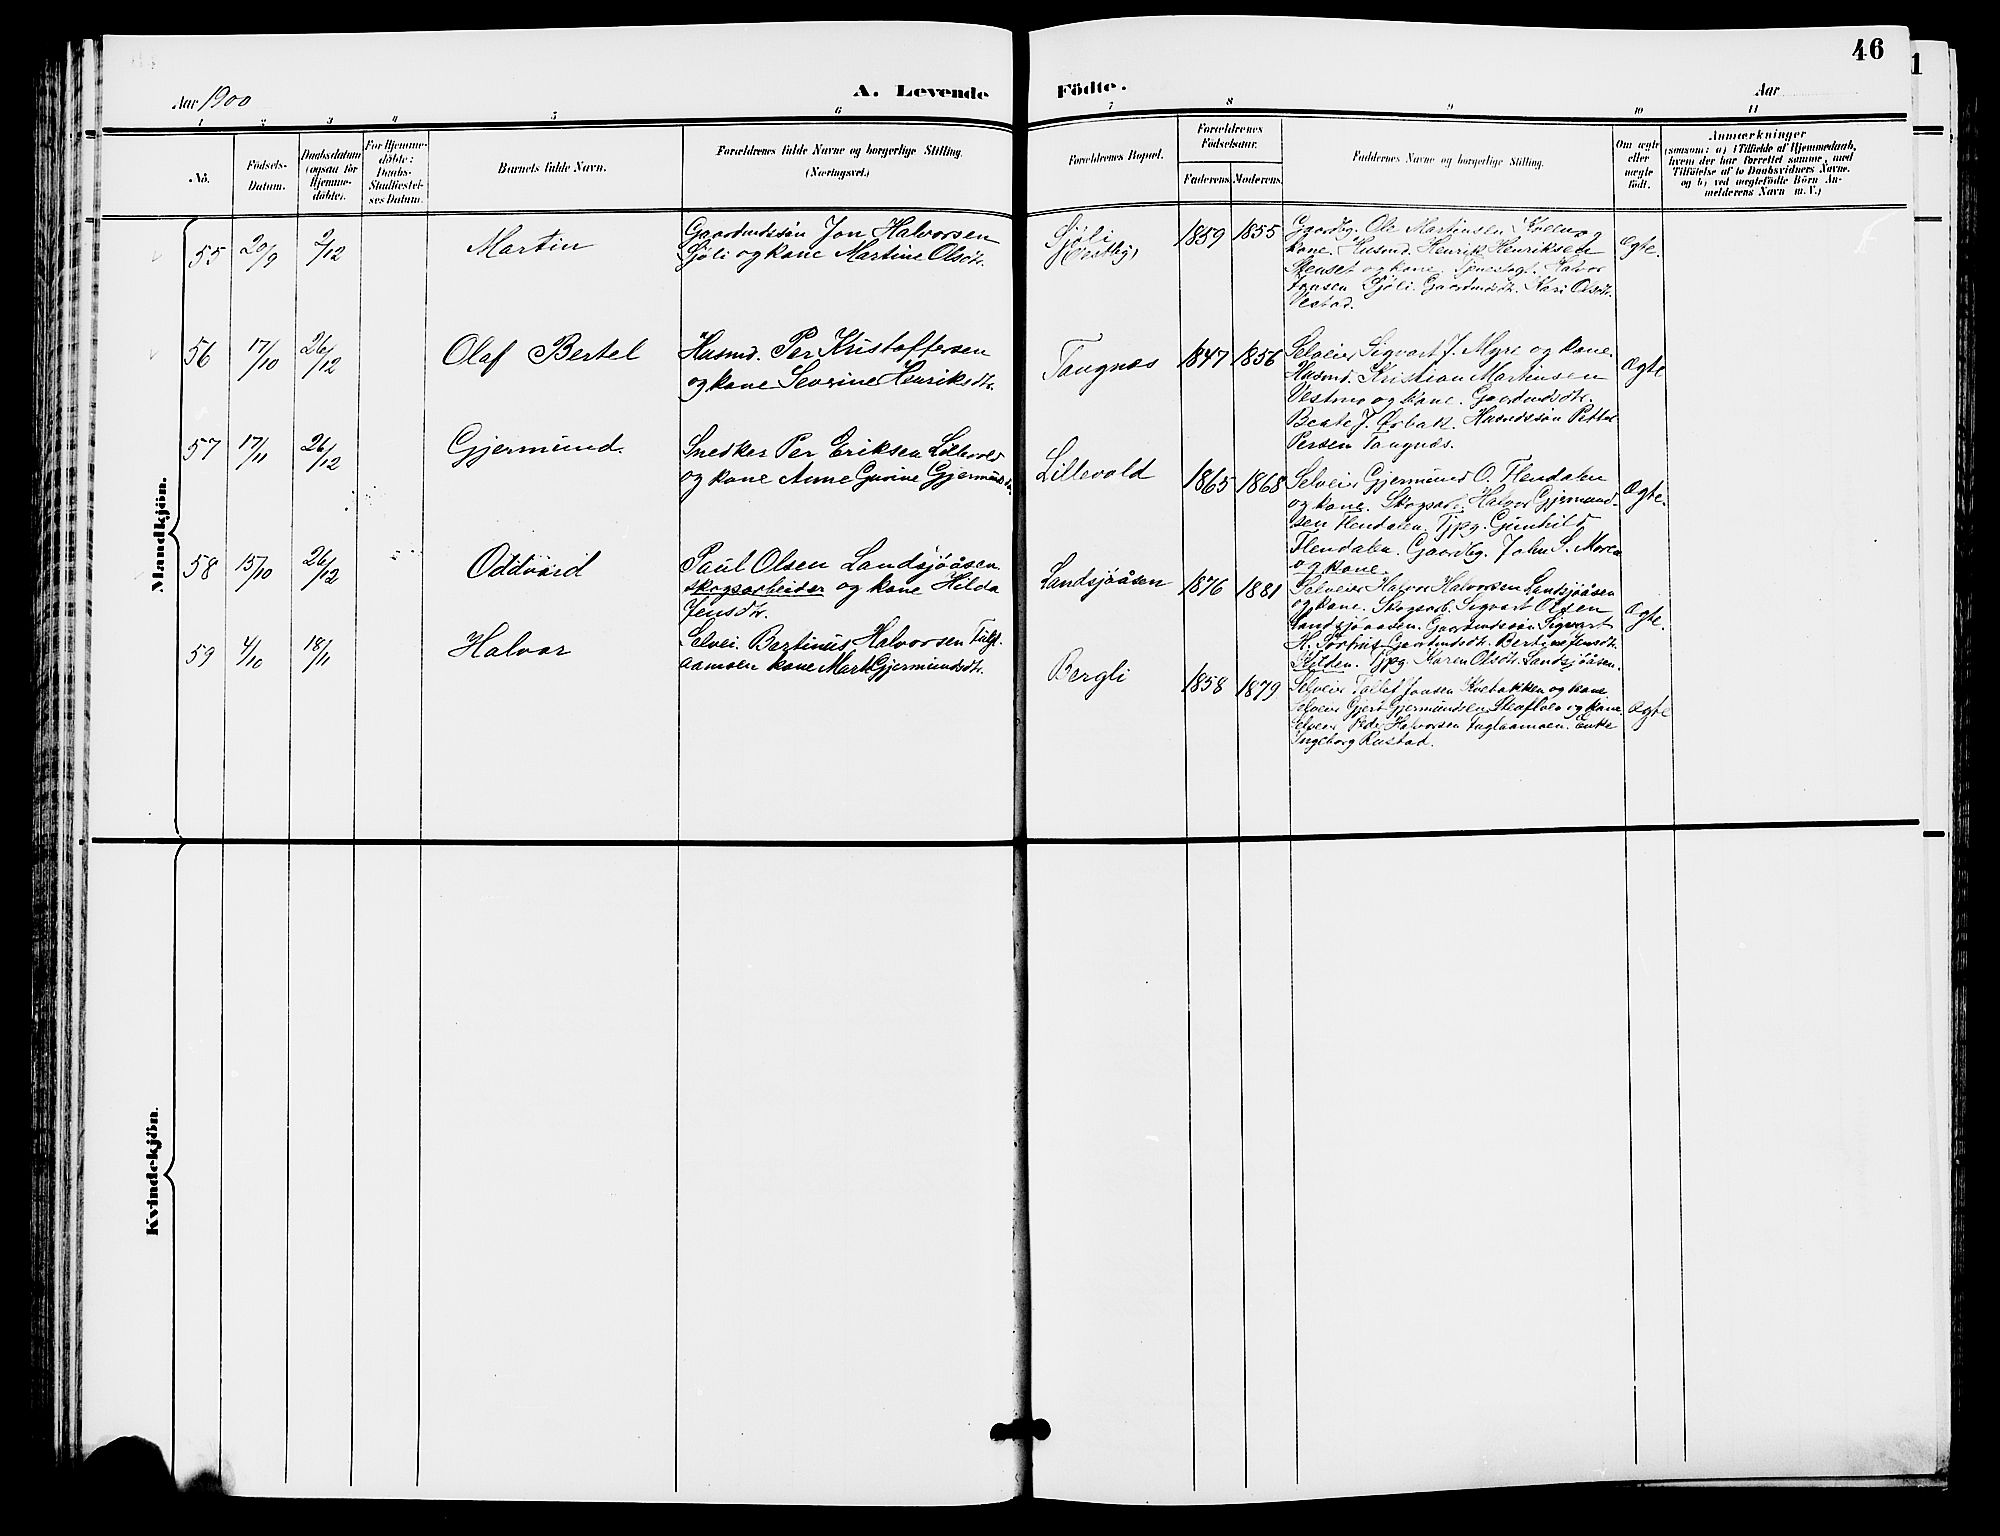 46
1
Aar 1900
A. Levende
Födte.
Aar
1 2 3 4 5 6 7 8 9 10 11
No.
Födsels-
Datum.
Daabsdatum
(ogsaa for
Hjemme-
döbte).
For Hjemme-
döbte:
Daabs-
Stadfæstel-
ses Datum.
Barnets fulde Navn.
Forældrenes fulde Navne og borgerlige Stilling.
(Næringsvei.)
Forældrenes Bopæl.
Forældrenes
Födselsaar.
Faderens.
Moderens.
Faddernes Navne og borgerlige Stilling.
Om ægte
eller
uægte
födt.
Anmærkninger
(saasom: a) i Tilfælde af Hjemmedaab,
hvem der har forrettet samme, med
Tilföielse af to Daabsvidners Navne.
og b) ved uægtefödte Börn An-
melderens Navn m. V.)
Mandkjön.
55
20/9
2/12
Martin
Gaardmdssön Jon Halvorsen
Sjöli og kone Martine Olsdtr.
Sjöli
1859
1855
Gaardbg. Ole Martinsen Kollen og
kone. Husmd. Henrik Henriksen
Stenset og kone. Halvor
Jonsen Sjöli. Gaardmdsdtr. Kari Olsdtr.
Vestad.
Ægte.
56
17/10
26/12
Olaf Bertel
Husmd. Per Kristoffersen
og kone Severine Henriksdtr.
Tangnæs
1847
1856
Selveier Sigvart J. Myre og kone.
Husmd. Kristian Martinsen
Vestmo og kone. Gaardmdsdtr.
Beate J. Örbak. Husmdssön Petter
Persen Tangnæs.
Ægte
57
17/11
26/12
Gjermund.
Snedker Per Eriksen Lillevold
og kone Anne Gurine Gjermundsdtr.
Lillevold
1865
1868
Selveier Gjermund O. Flendalen
og kone. Skogsarb. Halvor Gjermund-
sen Flendalen. Tjpg. Gunhild
Flendalen. Gaardbg. John S. Moren
og kone.
Ægte.
58
15/10
26/12
Oddvard
Paul Olsen Landsjöåsen
skogsarbeider og kone Hilda
Jensdtr.
Landsjöåsen
1876
1881
Selveier Halvor Halvorsen Landsjöåsen
og kone. Skogsarb. Sigvart Olsen
Landsjöaasen. Gaardmdssön Sigvart
H. Sörhus. Gaardmdsdtr. Bertine Jensdtr.
Kilden. Tjpg. Karen Olsdtr. Landsjöåsen.
Ægte.
59
4/10
18/11
Halvar
Selvei. Bertinus Halvorsen Fugl-
aamoen kone Marte Gjermundsdtr.
Bergli
1858
1879
Selveier Tollef Jonsen Kvebakken og kone
Selveier Gjert Gjermundsen og kone
Selveier Peder Halvorsen Fuglaamoen. Enke
Ingeborg Rustad.
Ægte
Kvindekjön.